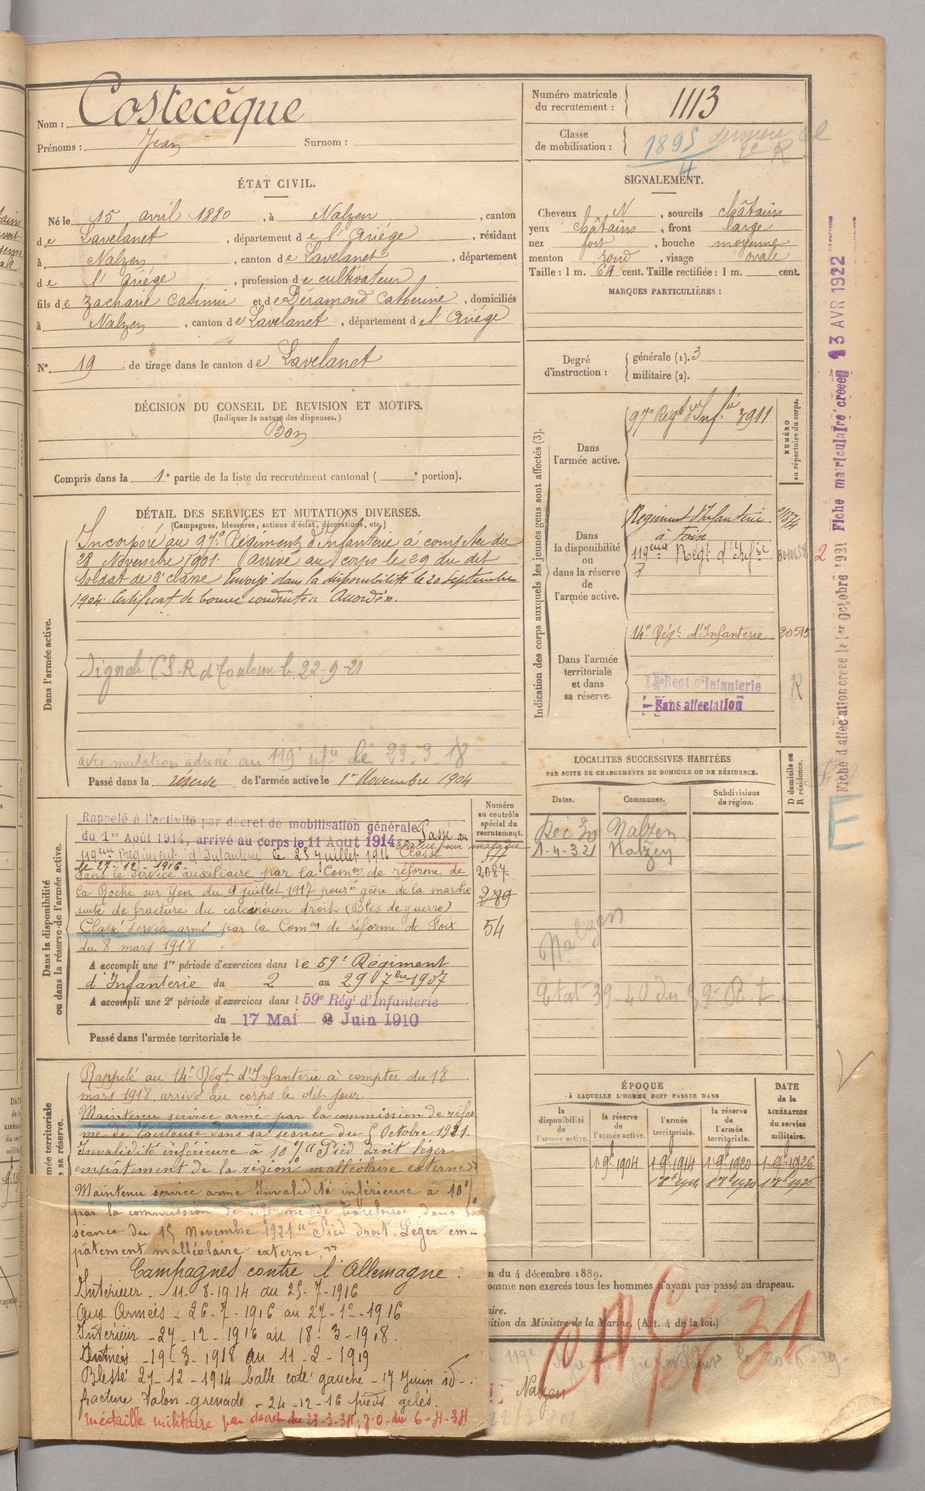 Nom : Costecèque
Prénoms : Jean Surnom :
ÉTAT CIVIL.
Né le 15 avril 1880, à Nalzen, canton
de Lavelanet, département de l'Ariège, résidant
à Nalzen, canton de Lavelanet, département
de l'Ariège, profession de cultivateur
fils de Zacharie Casimir et de Déramond Catherine, domiciliés
à Nalzen, canton de Lavelanet, département de l'Ariège
N° 19 de tirage dans le canton de Lavelanet
DÉCISION DU CONSEIL DE REVISION ET MOTIFS.
(Indiquer la nature des dispenses.)
Bon
Compris dans la 1e partie de la liste du recrutement cantonal ( e portion).
DÉTAIL DES SERVICES ET MUTATIONS DIVERSES.
(Campagnes, blessures, actions d'éclat, décorations, etc.)
Dans l'armée active.
Incorporé au 97e Régiment d'Infanterie à compter du
28 Novembre 1901 arrivé au corps le 29 du dit
Soldat de 2e classe Envoyé dans la disponibilité le 20 Septembre
1904. Certificat de bonne conduite Accordé.
Signalé C.S.R. de Toulouse le 22-9-21
avis mutation adressé au 119e le 23.3.18
Passé dans la réserve de l'armée active le 1er Novembre 1904
Dans la disponibilité
ou dans la réserve de l'armée active.
Rappelé à l'activité par décret de mobilisation générale
du 1er Août 1914, arrivé au corps le 11 Août 1914 Passé au
119ème Régiment d'Infanterie le 25 juillet 1916 Classé
le 27-12-1916
dans le Service auxiliaire par la Comon de réforme de
la Roche sur Yon du 9 juillet 1917 pour "gêne de la marche
suite de fracture du calcanéum droit (Bles. de guerre)
Classé Service armé par la Comon de réforme de Foix
du 8 mars 1918
A accompli une 1re période d'exercices dans le 59e Régiment
d'Infanterie du 2 au 29 7bre 1907
A accompli une 2e période d'exercices dans l 59e Rég. d'Infanterie
du 17 Mai 2 Juin 1910
Passé dans l'armée territoriale le
Numéro
au contrôle
spécial du
recrutement.
2087
289
54
Rappelé au 14e Régt d'Infanterie à compter du 18
mars 1918 arrivé au corps le dit jour
Maintenu service armé par la commission de réfor
me de Toulouse dans sa séance du Octobre 1921.
Invalidité inférieure à 10 % Pied droit léger
empâtement de la région malléolaire externe
Maintenu service armé Invalidité inférieure à 10%
par la commission de réforme de Toulouse dans sa
séance du 15 Novembre 1921 "Pied droit. Léger em-
pâtement malléolaire externe."
Campagnes contre l'Allemagne :
Intérieur - 11-8-1914 au 25-7-1916
Aux Armées - 26-7-1916 au 27-12-1916
Intérieur - 27-12-1916 au 18-3-1918.
Armées - 19-3-1918 au 11-2-1919
Blessé 27-12-1914 balle coté gauche - 17 Juin 15-
fracture talon-grenade - 24-12-16 pieds gelés.
Médaille militaire par décret du 23-3-34, J.O. du 6-4-34
Numéro matricule
du recrutement : 1113
Classe
de mobilisation : 1895
4
SIGNALEMENT.
Cheveux N, sourcils châtains
yeux châtains, front large
nez fort, bouche moyenne
menton rond, visage ovale
Taille : 1 m. 64 cent. Taille rectifiée : 1 m. cent.
MARQUES PARTICULIÈRES :
Degré
d'instruction :
générale (1). 3
militaire (2).
Indication des corps auxquels les jeunes gens sont affectés (3).
Dans
l'armée active.
97e Régt d'Infie 3911
NUMÉRO
au répertoire du corps.
Dans
la disponibilité
ou
dans la réserve
de
l'armée active.
Régiment d'Infanterie
à Foix
119ème Régt d'Infie
Dans l'armée
territoriale
et dans
sa réserve.
14e Régt d'Infanterie
R
Régt d'Infanterie
Sans affectation
LOCALITES SUCCESSIVES HABITÉES
PAR SUITE DE CHANGEMENTS DE DOMICILE OU DE RÉSIDENCE.
Dates. Communes. Subdivisions
de région.
D domicile ou
R résidence.
Nalzen
1-4-32 Nalzen
Nalzen
ÉPOQUE
À LAQUELLE L'HOMME DOIT PASSER DANS
la
disponibilité
de
l'armée active.
la réserve
de
l'armée active.
l'armée
territoriale.
la réserve
de l'armée
territoriale.
DATE
de la
LIBÉRATION
du service
militaire.
1.9.1904 1.9.1914 1.9.1920 1.9.1926
n du 4 décembre 1889.
omme non exercés tous les hommes n'ayant pas passé au drapeau.
aire.
sition du Ministre de la Marine. (Art. 4 de la loi.)
Nalzen
Fiche d'affectation créée le 1er Octobre 1921 Fiche matriculaire créée 13 AVR 1922
E